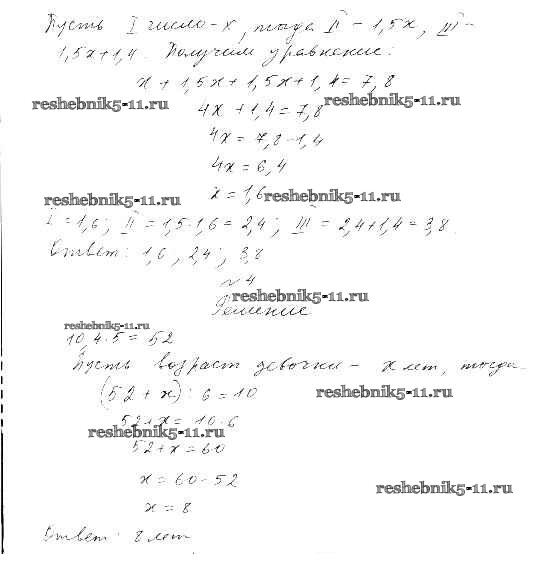 Пусть I число - x, тогда II - 1,5x, III -
1,5x+1,4. Получим уравнение:
x + 1,5x + 1,5x + 1,4 = 7,8
reshebnik5-11.ru
reshebnik5-11.ru
4x + 1,4 = 7,8
4x = 7,8 - 1,4
4x = 6,4
x = 1,6
reshebnik5-11.ru
reshebnik5-11.ru
I = 1,6; II = 1,5·1,6 = 2,4; III = 2,4+1,4 = 3,8.
Ответ: 1,6, 2,4; 3,8
№ 4
reshebnik5-11.ru
Решение
reshebnik5-11.ru
10,4·5 = 52
Пусть возраст девочки - x лет, тогда
(52 + x) : 6 = 10
reshebnik5-11.ru
52+x = 10·6
reshebnik5-11.ru
52+x = 60
x = 60-52
reshebnik5-11.ru
x = 8
Ответ: 8 лет